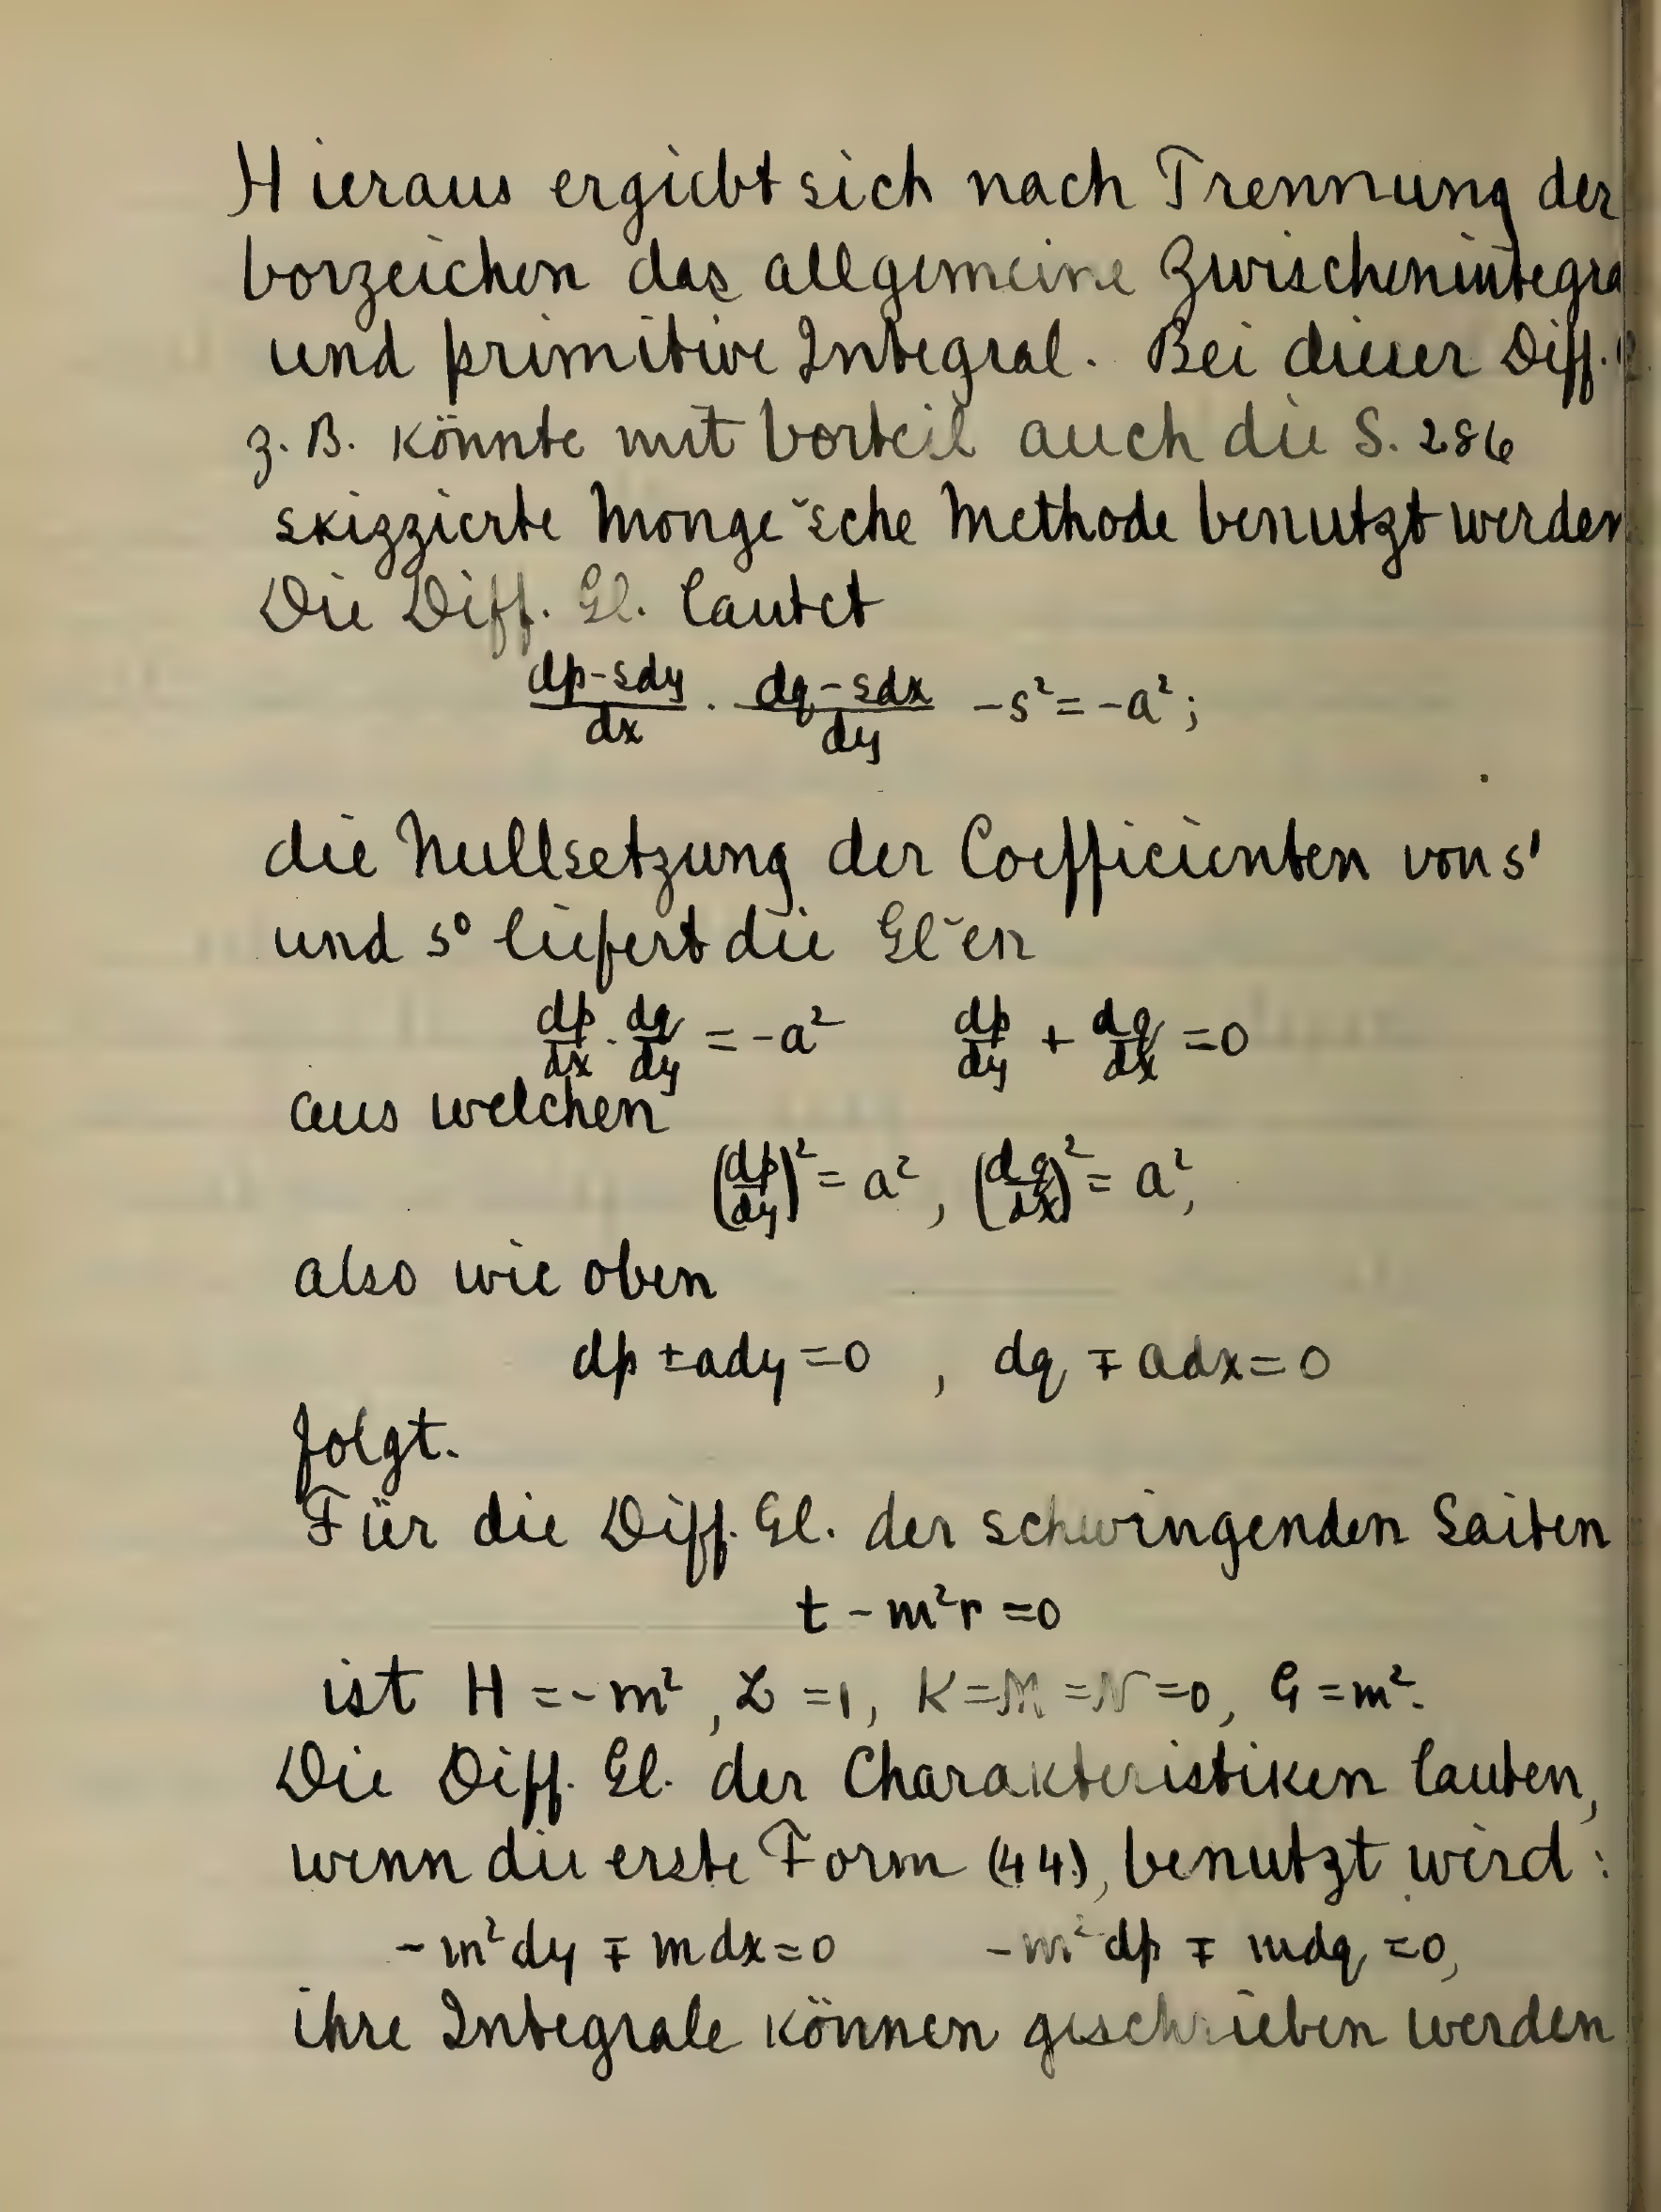 Hieraus ergiebt sich nach Trennung der
Vorzeichen das allgemeine Zwischenintegra
und primitive Integral. Bei dieser Diff.
z. B. könnte mit Vorteil auch die S. 286
skizzierte Monge'sche Methode benutzt werden
Die Diff. Gl. lautet
(dp-sdy)/dx · (dq-sdx)/dy - s² = -a²;
die Nullsetzung der Coefficienten von s'
und s° liefert die Gl˘en
dp/dx · dq/dy = -a²   dp/dy + dq/dx = 0
aus welchen
(dp/dy)² = a², (dq/dx)² = a²,
also wie oben
dp ± ady = 0 , dq ∓ adx = 0
folgt.
Für die Diff. Gl. der schwingenden Saiten
t - m²r = 0
ist H = -m², L = 1, K = M = N = 0, G = m².
Die Diff. Gl. der Charakteristiken lauten,
wenn die erste Form (44), benutzt wird:
-m²dy ∓ mdx = 0   -m²dp ∓ mdq = 0,
ihre Integrale können geschrieben werden